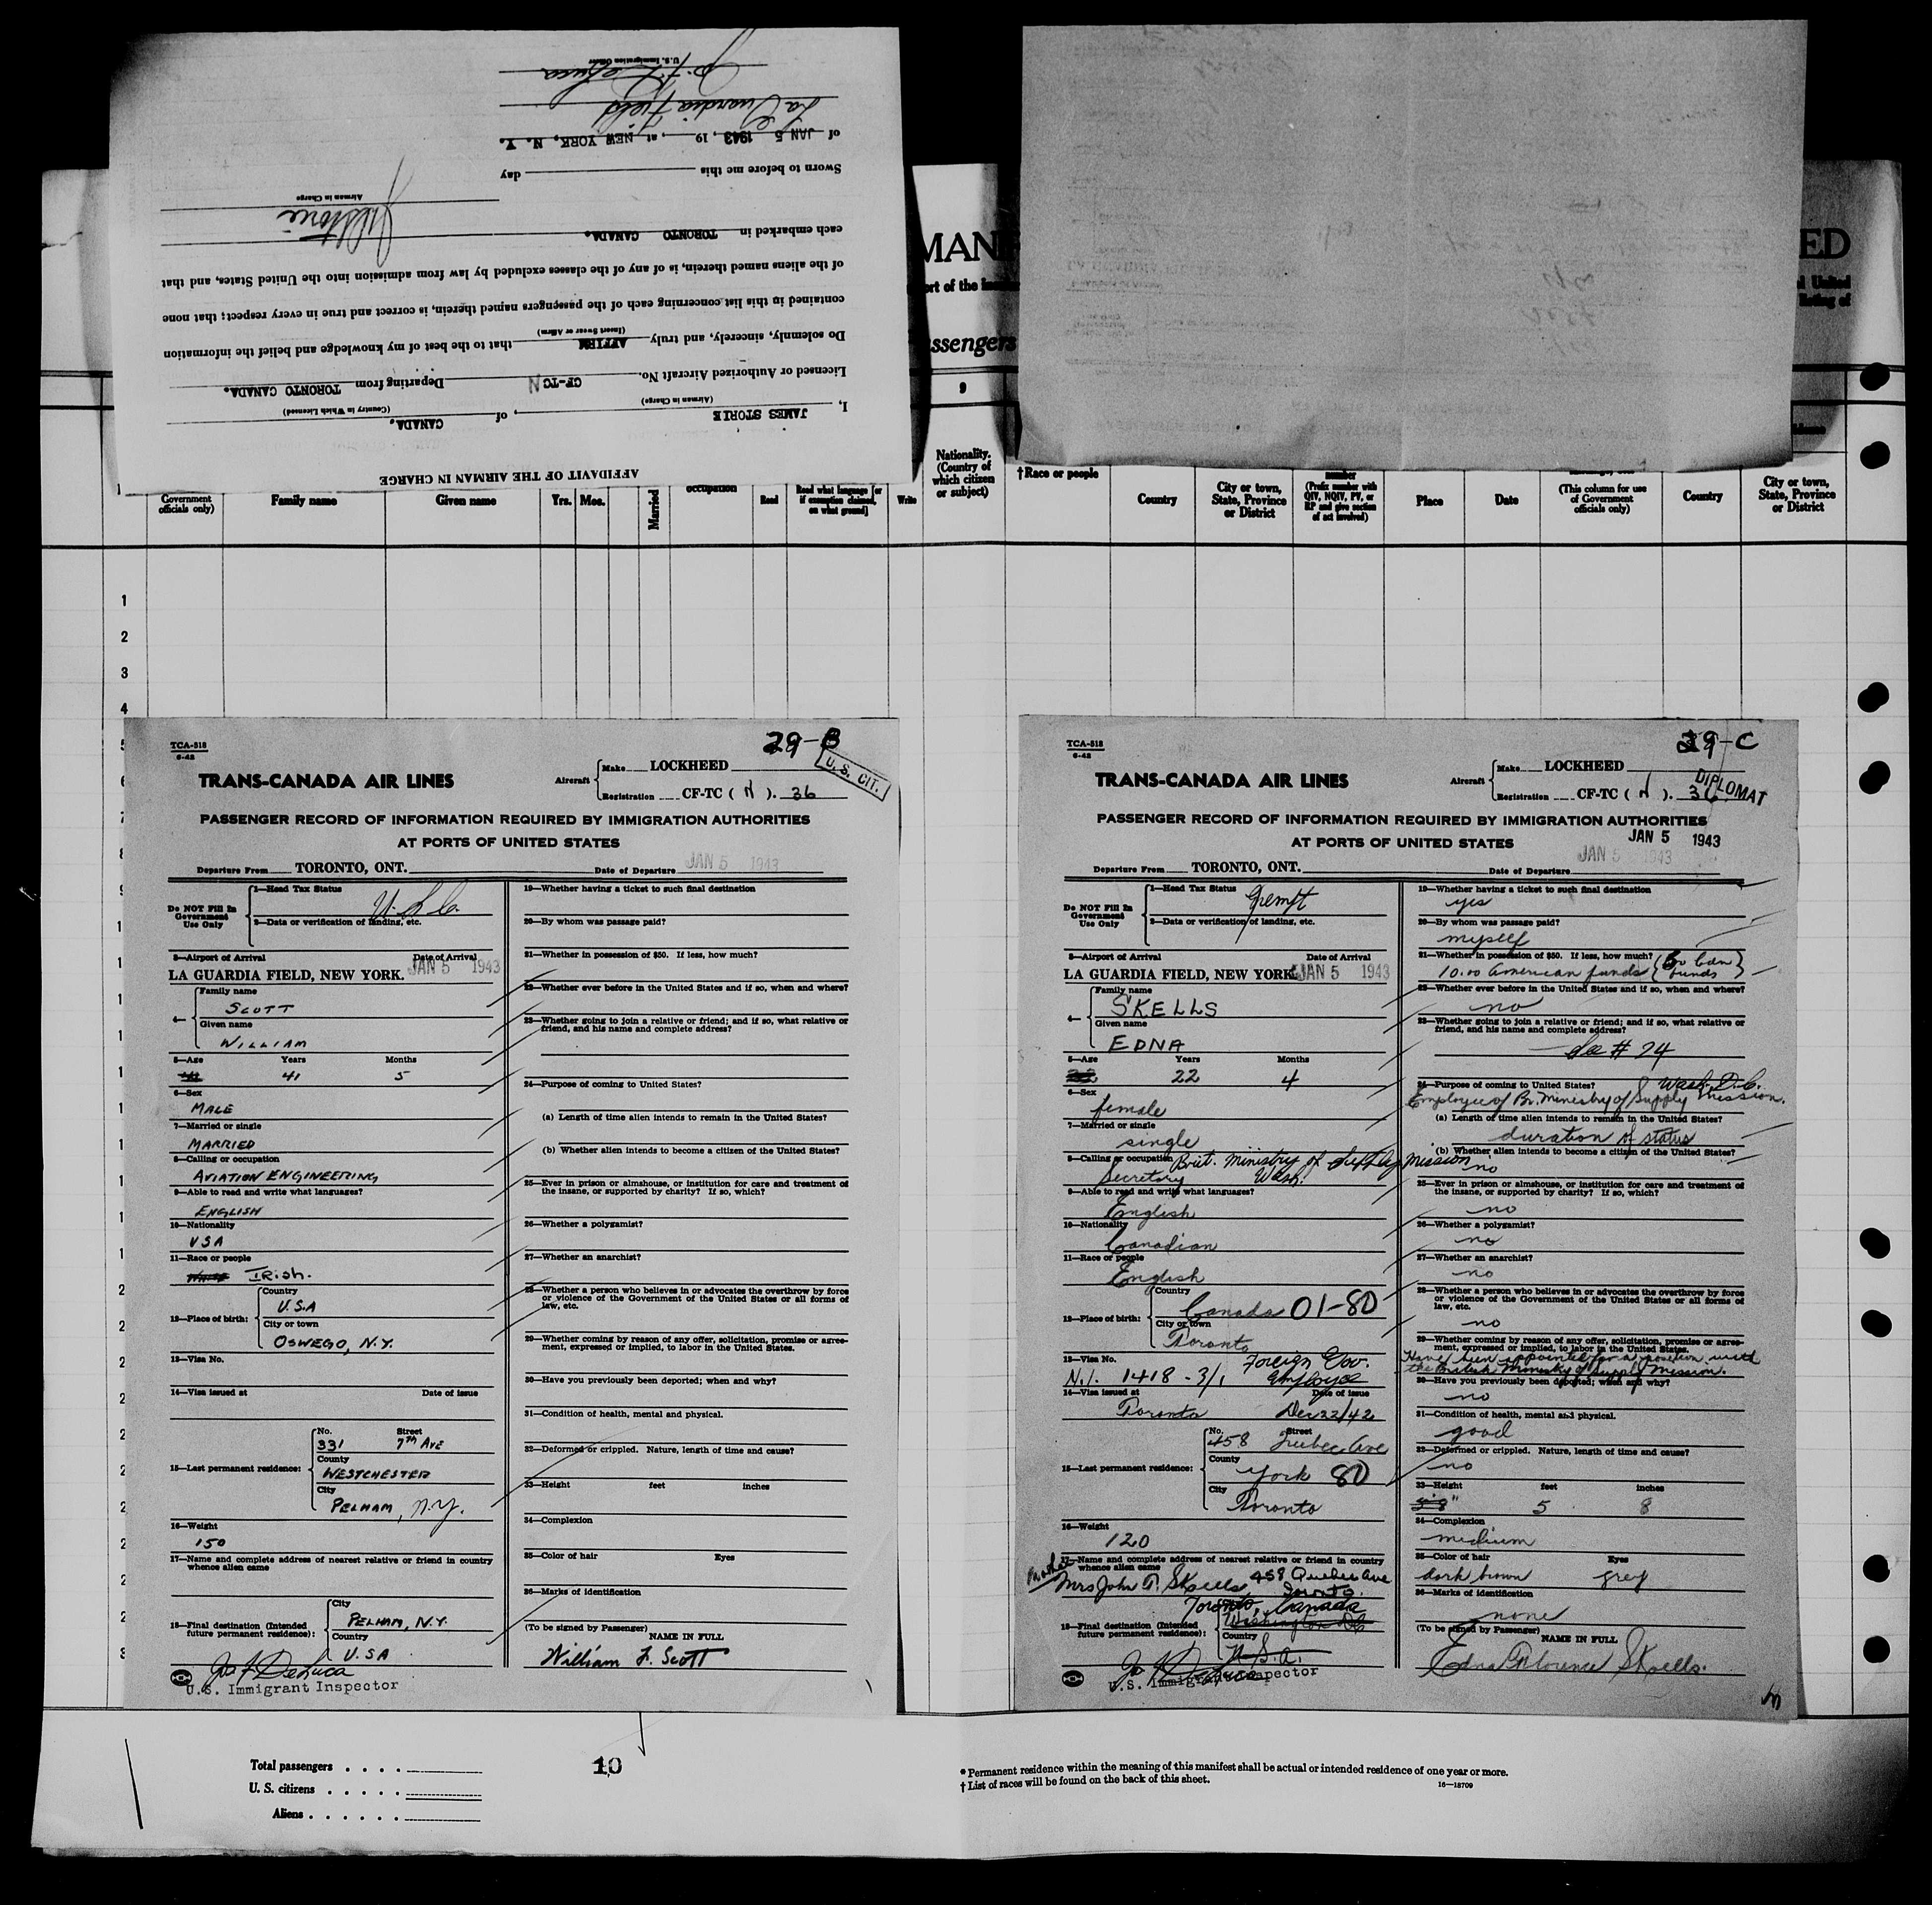 AFFIDAVIT OF THE AIRMAN IN CHARGE
I, JAMES STORIE, of CANADA,
(Airman in Charge) (Country in Which Licensed)
Licensed or Authorized Aircraft No. CF-TC N Departing from TORONTO CANADA.
Do solemnly, sincerely, and truly AFFIRM that to the best of my knowledge and belief the information
(Insert Swear or Affirm)
contained in this list concerning each of the passengers named therein, is correct and true in every respect; that none
of the aliens named therein, is of any of the classes excluded by law from admission into the United States, and that
each embarked in TORONTO CANADA.
Airman in Charge
Sworn to before me this day
of JAN 5 1943, 19 , at NEW YORK, N. Y.
La Guardia Field
U.S. Immigration Officer
MAN
ED
ort of the
l United
listing of
ssengers
9
Government officials only)
Family name
Given name
Yrs. Mos.
Married
occupation
Read
Read what language [or if exemption claimed, on what ground]
Write
Nationality. (Country of which citizen or subject)
†Race or people
Country
City or town, State, Province or District
number (Prefix number with QIV, NQIV, PV, or RP and give section of act involved)
Place
Date
(This column for use of Government officials only)
Country
City or town, State, Province or District
1
2
3
4
5
6
7
8
9
TCA-318
6-42
29-B
U. S. CIT.
TRANS-CANADA AIR LINES
Aircraft Make LOCKHEED
Registration CF-TC ( N ). 36
PASSENGER RECORD OF INFORMATION REQUIRED BY IMMIGRATION AUTHORITIES
AT PORTS OF UNITED STATES
Departure From TORONTO, ONT. Date of Departure JAN 5 1943
Do NOT Fill In Government Use Only
1—Head Tax Status
U.S.C.
2—Data or verification of landing, etc.
3—Airport of Arrival Date of Arrival
LA GUARDIA FIELD, NEW YORK. JAN 5 1943
4— Family name
SCOTT
Given name
WILLIAM
5—Age Years Months
41 41 5
6—Sex
MALE
7—Married or single
MARRIED
8—Calling or occupation
AVIATION ENGINEERING
9—Able to read and write what languages?
ENGLISH
10—Nationality
USA
11—Race or people
White IRish.
12—Place of birth: Country
U.S.A
City or town
OSWEGO, N.Y.
13—Visa No.
14—Visa issued at Date of issue
15—Last permanent residence: No. Street
331 7th AVE
County
WESTCHESTER
City
PELHAM, N.Y.
16—Weight
150
17—Name and complete address of nearest relative or friend in country whence alien came
18—Final destination (Intended future permanent residence): City
PELHAM, N.Y.
Country
U.S.A
Jos F DeLuca
U.S. Immigrant Inspector
19—Whether having a ticket to such final destination
20—By whom was passage paid?
21—Whether in possession of $50. If less, how much?
22—Whether ever before in the United States and if so, when and where?
23—Whether going to join a relative or friend; and if so, what relative or friend, and his name and complete address?
24—Purpose of coming to United States?
(a) Length of time alien intends to remain in the United States?
(b) Whether alien intends to become a citizen of the United States?
25—Ever in prison or almshouse, or institution for care and treatment of the insane, or supported by charity? If so, which?
26—Whether a polygamist?
27—Whether an anarchist?
28—Whether a person who believes in or advocates the overthrow by force or violence of the Government of the United States or all forms of law, etc.
29—Whether coming by reason of any offer, solicitation, promise or agreement, expressed or implied, to labor in the United States.
30—Have you previously been deported; when and why?
31—Condition of health, mental and physical.
32—Deformed or crippled. Nature, length of time and cause?
33—Height feet inches
34—Complexion
35—Color of hair Eyes
36—Marks of identification
(To be signed by Passenger) NAME IN FULL
William F. Scott
TCA-318
6-42
29-C
DIPLOMAT
TRANS-CANADA AIR LINES
Aircraft Make LOCKHEED
Registration CF-TC ( N ). 36
PASSENGER RECORD OF INFORMATION REQUIRED BY IMMIGRATION AUTHORITIES
AT PORTS OF UNITED STATES
JAN 5 1943
JAN 5 1943
Departure From TORONTO, ONT. Date of Departure
Do NOT Fill In Government Use Only
1—Head Tax Status
Exempt
2—Data or verification of landing, etc.
3—Airport of Arrival Date of Arrival
LA GUARDIA FIELD, NEW YORK. JAN 5 1943
4— Family name
SKELLS
Given name
EDNA
5—Age Years Months
22 4
6—Sex
female
7—Married or single
single
8—Calling or occupation Brit. Ministry of Supply Mission
Secretary Wash.
9—Able to read and write what languages?
English
10—Nationality
Canadian
11—Race or people
English
12—Place of birth: Country
Canada 01-80
City or town
Toronto
13—Visa No. Foreign Gov.
N.I. 1418-3/1 Employee
14—Visa issued at Date of issue
Toronto Dec 22/42
15—Last permanent residence: No. Street
458 Quebec Ave
County
York 80
City
Toronto
16—Weight
120
17—Name and complete address of nearest relative or friend in country whence alien came
Mother
Mrs John T. Skells 458 Quebec Ave
Toronto.
Toronto, Canada
18—Final destination (Intended future permanent residence): City
Washington DC
Country
U.S.A.
U.S. Immigrant Inspector
19—Whether having a ticket to such final destination
yes
20—By whom was passage paid?
myself
21—Whether in possession of $50. If less, how much?
10.00 American funds (50 Can funds)
22—Whether ever before in the United States and if so, when and where?
no
23—Whether going to join a relative or friend; and if so, what relative or friend, and his name and complete address?
See # 24
24—Purpose of coming to United States? Wash. D.C.
Employee of Br. Ministry of Supply Mission.
(a) Length of time alien intends to remain in the United States?
duration of status
(b) Whether alien intends to become a citizen of the United States?
no
25—Ever in prison or almshouse, or institution for care and treatment of the insane, or supported by charity? If so, which?
no
26—Whether a polygamist?
no
27—Whether an anarchist?
no
28—Whether a person who believes in or advocates the overthrow by force or violence of the Government of the United States or all forms of law, etc.
no
29—Whether coming by reason of any offer, solicitation, promise or agreement, expressed or implied, to labor in the United States.
Have been appointed for a position with
the British Ministry of Supply Mission.
30—Have you previously been deported; when and why?
no
31—Condition of health, mental and physical.
good
32—Deformed or crippled. Nature, length of time and cause?
no
33—Height feet inches
5'8" 5 8
34—Complexion
medium
35—Color of hair Eyes
dark brown grey
36—Marks of identification
none
(To be signed by Passenger) NAME IN FULL
Edna Florence Skells.
Total passengers
U. S. citizens
Aliens
10
* Permanent residence within the meaning of this manifest shall be actual or intended residence of one year or more.
† List of races will be found on the back of this sheet.
16—18709